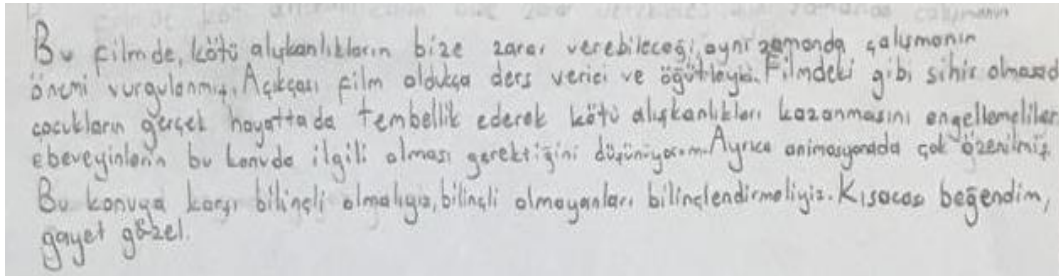 Bu filmde, kötü alışkanlıkların bize zarar verebileceği, ayni zamanda çalışmanın
önemi vurgulanmış. Açıkçası film oldukça ders verici ve öğütleyici. Filmdeki gibi sihir olmasad
çocukların gerçek hayattada tembellik ederek kötü alışkanlıkları kazanmasını engellemeliler
ebeveyinlerin bu konuda ilgili olması gerektiğini düşünüyorum. Ayrıca animasyonada çok özenilmiş.
Bu konuya karşı bilinçli olmalıyız, bilinçli olmayanları bilinçlendirmeliyiz. Kısacası beğendim,
gayet güzel.